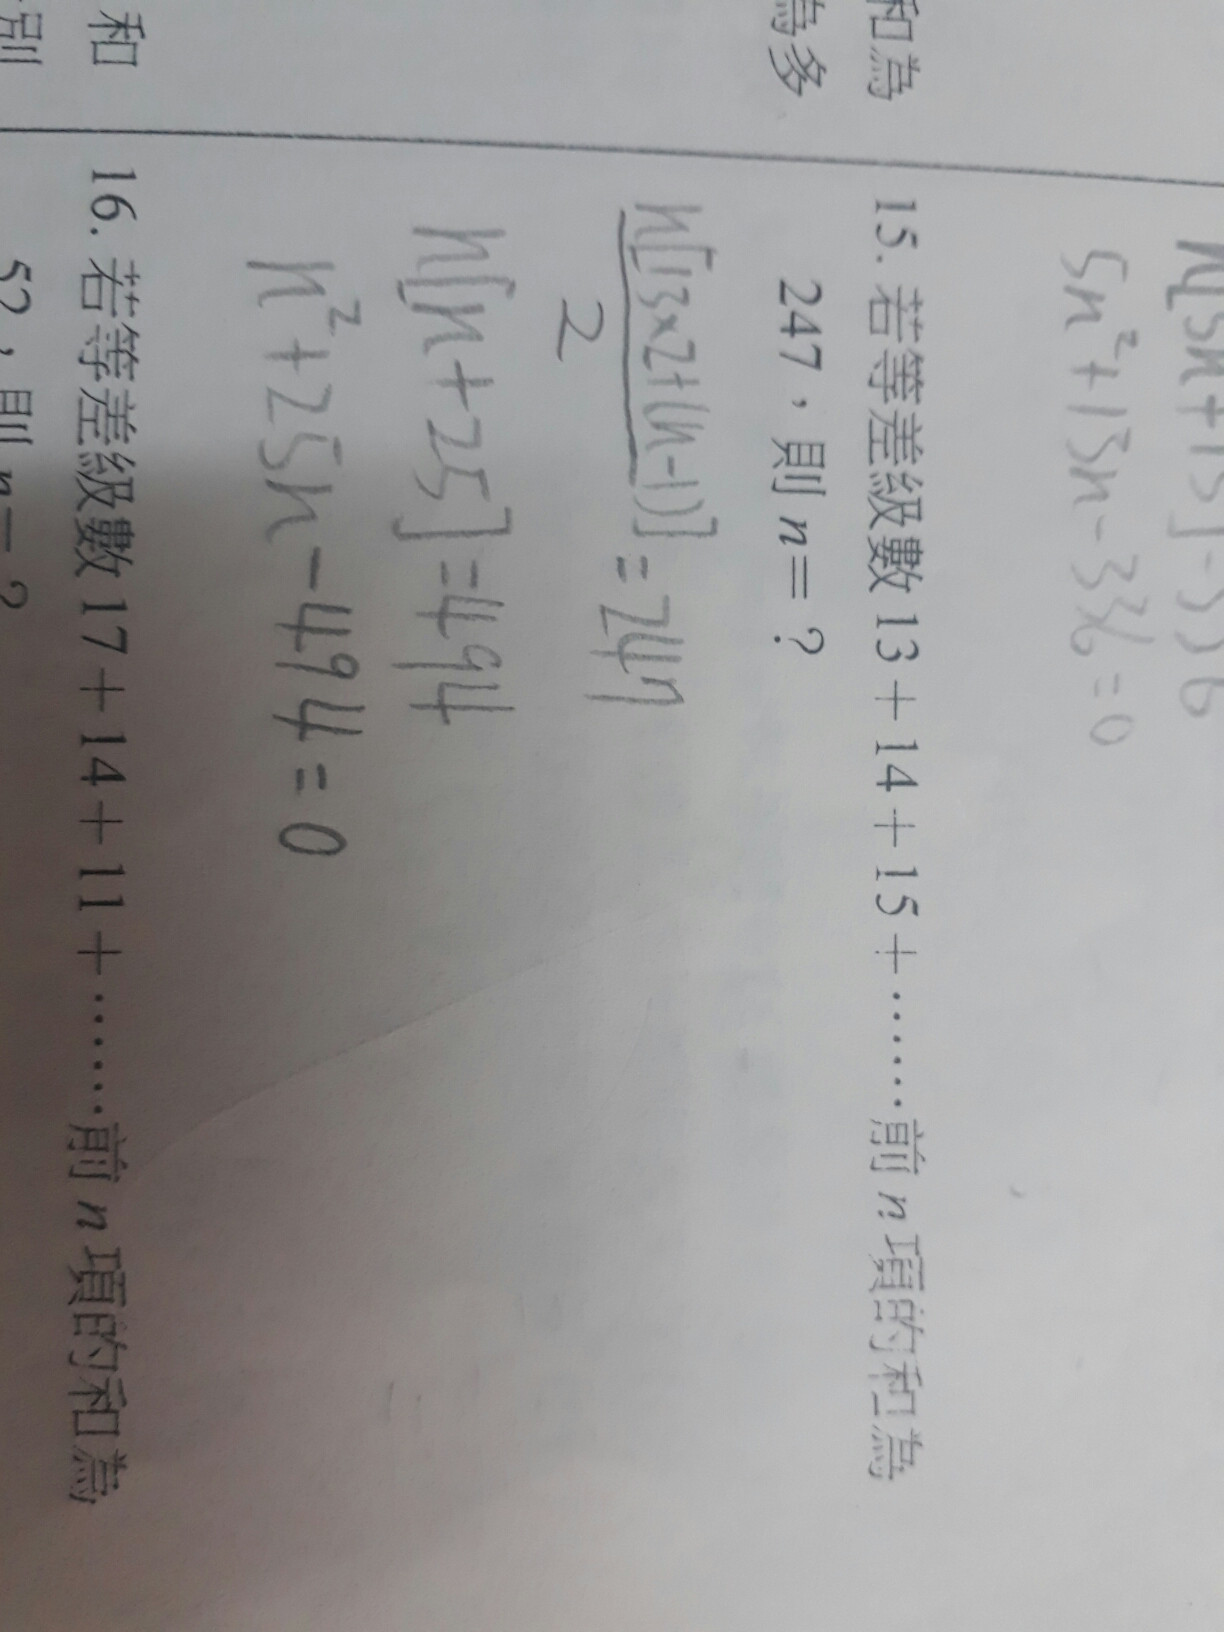 和為
為多
和
別
5n²+13n-336=0
15. 若等差級數 13+14+15+……前 n 項的和為
247，則 n=？
n[13×2+(n-1)]/2=247
n[n+25]=494
n²+25n-494=0
16. 若等差級數 17+14+11+……前 n 項的和為
52，則 n=？